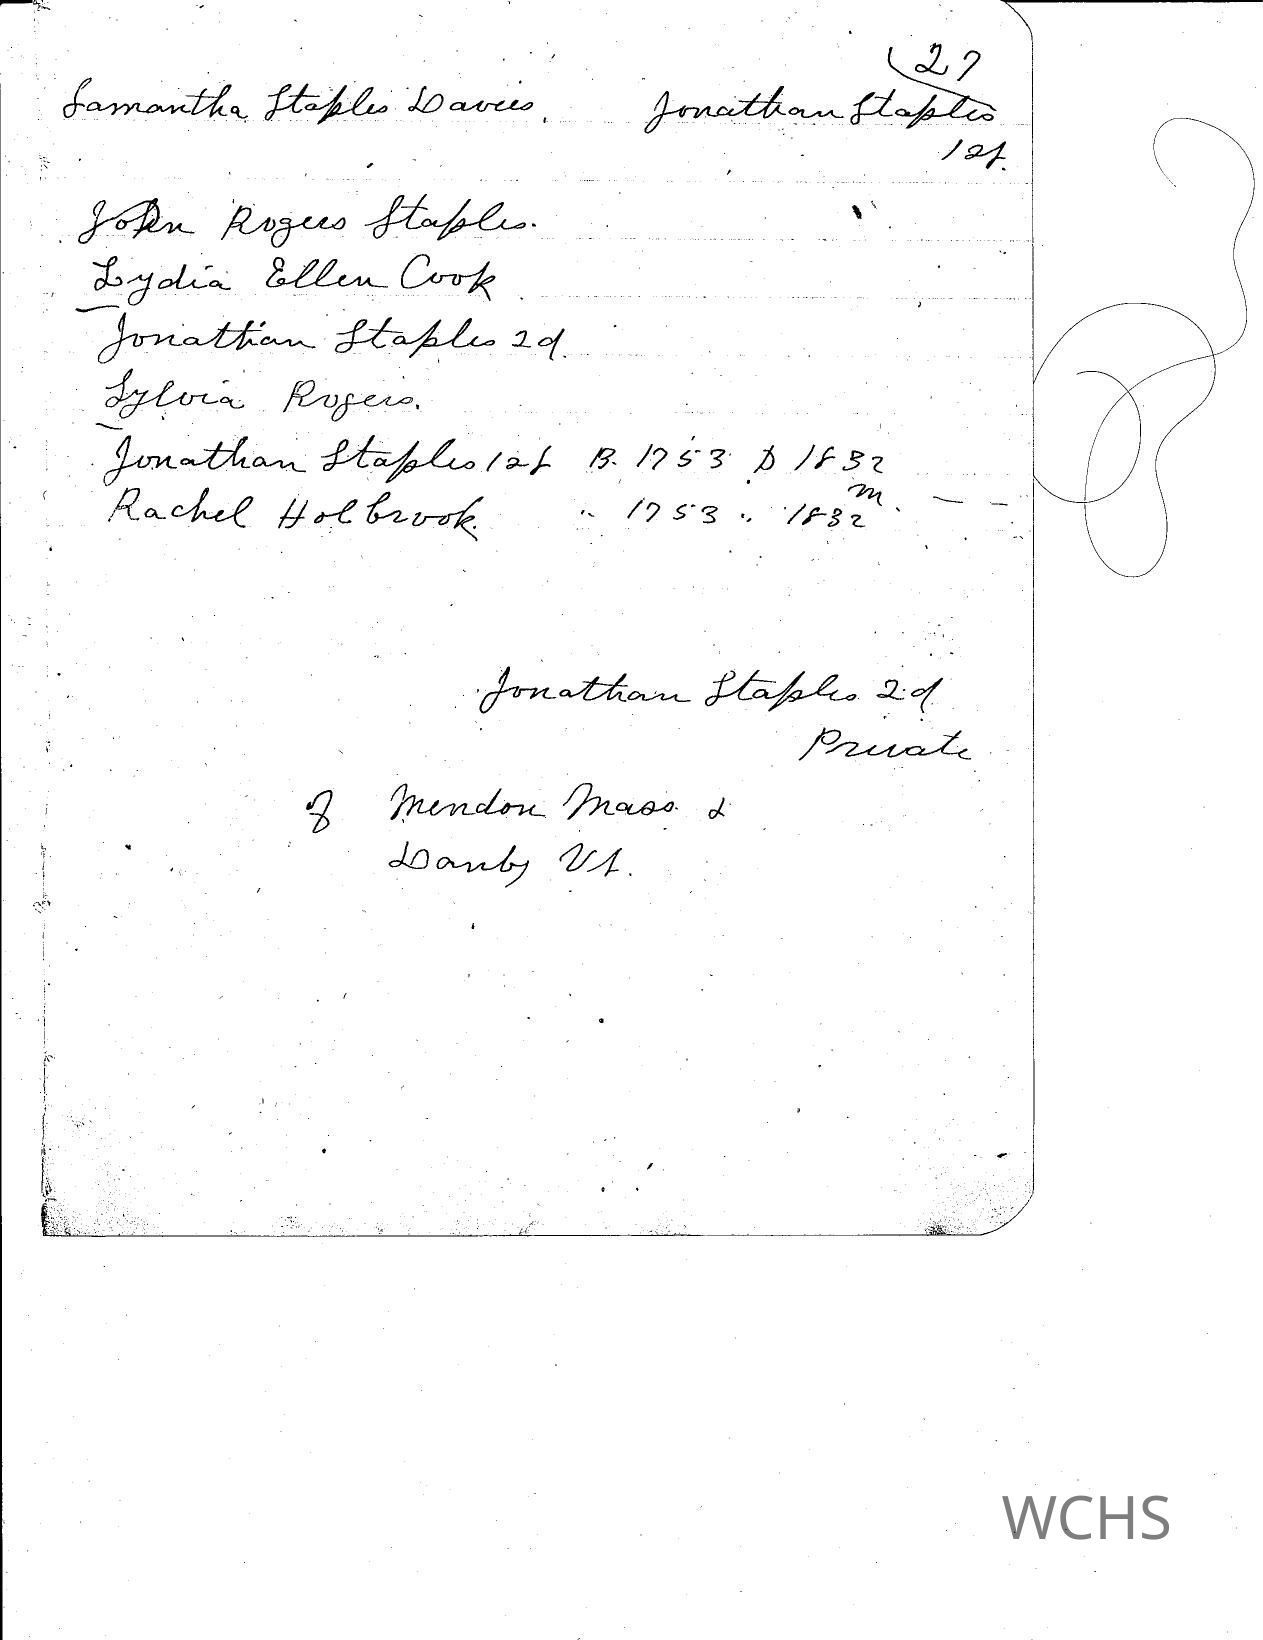 27
Samantha Staples Davies. Jonathan Staples
1st.
John Rogers Staples.
Lydia Ellen Cook
Jonathan Staples 2d.
Sylvia Rogers.
Jonathan Staples 1st B. 1753 D 1832
m
Rachel Holbrook. " 1753 " 1832
Jonathan Staples 2d
Private
of Mendon Mass. &
Danby Vt.
WCHS